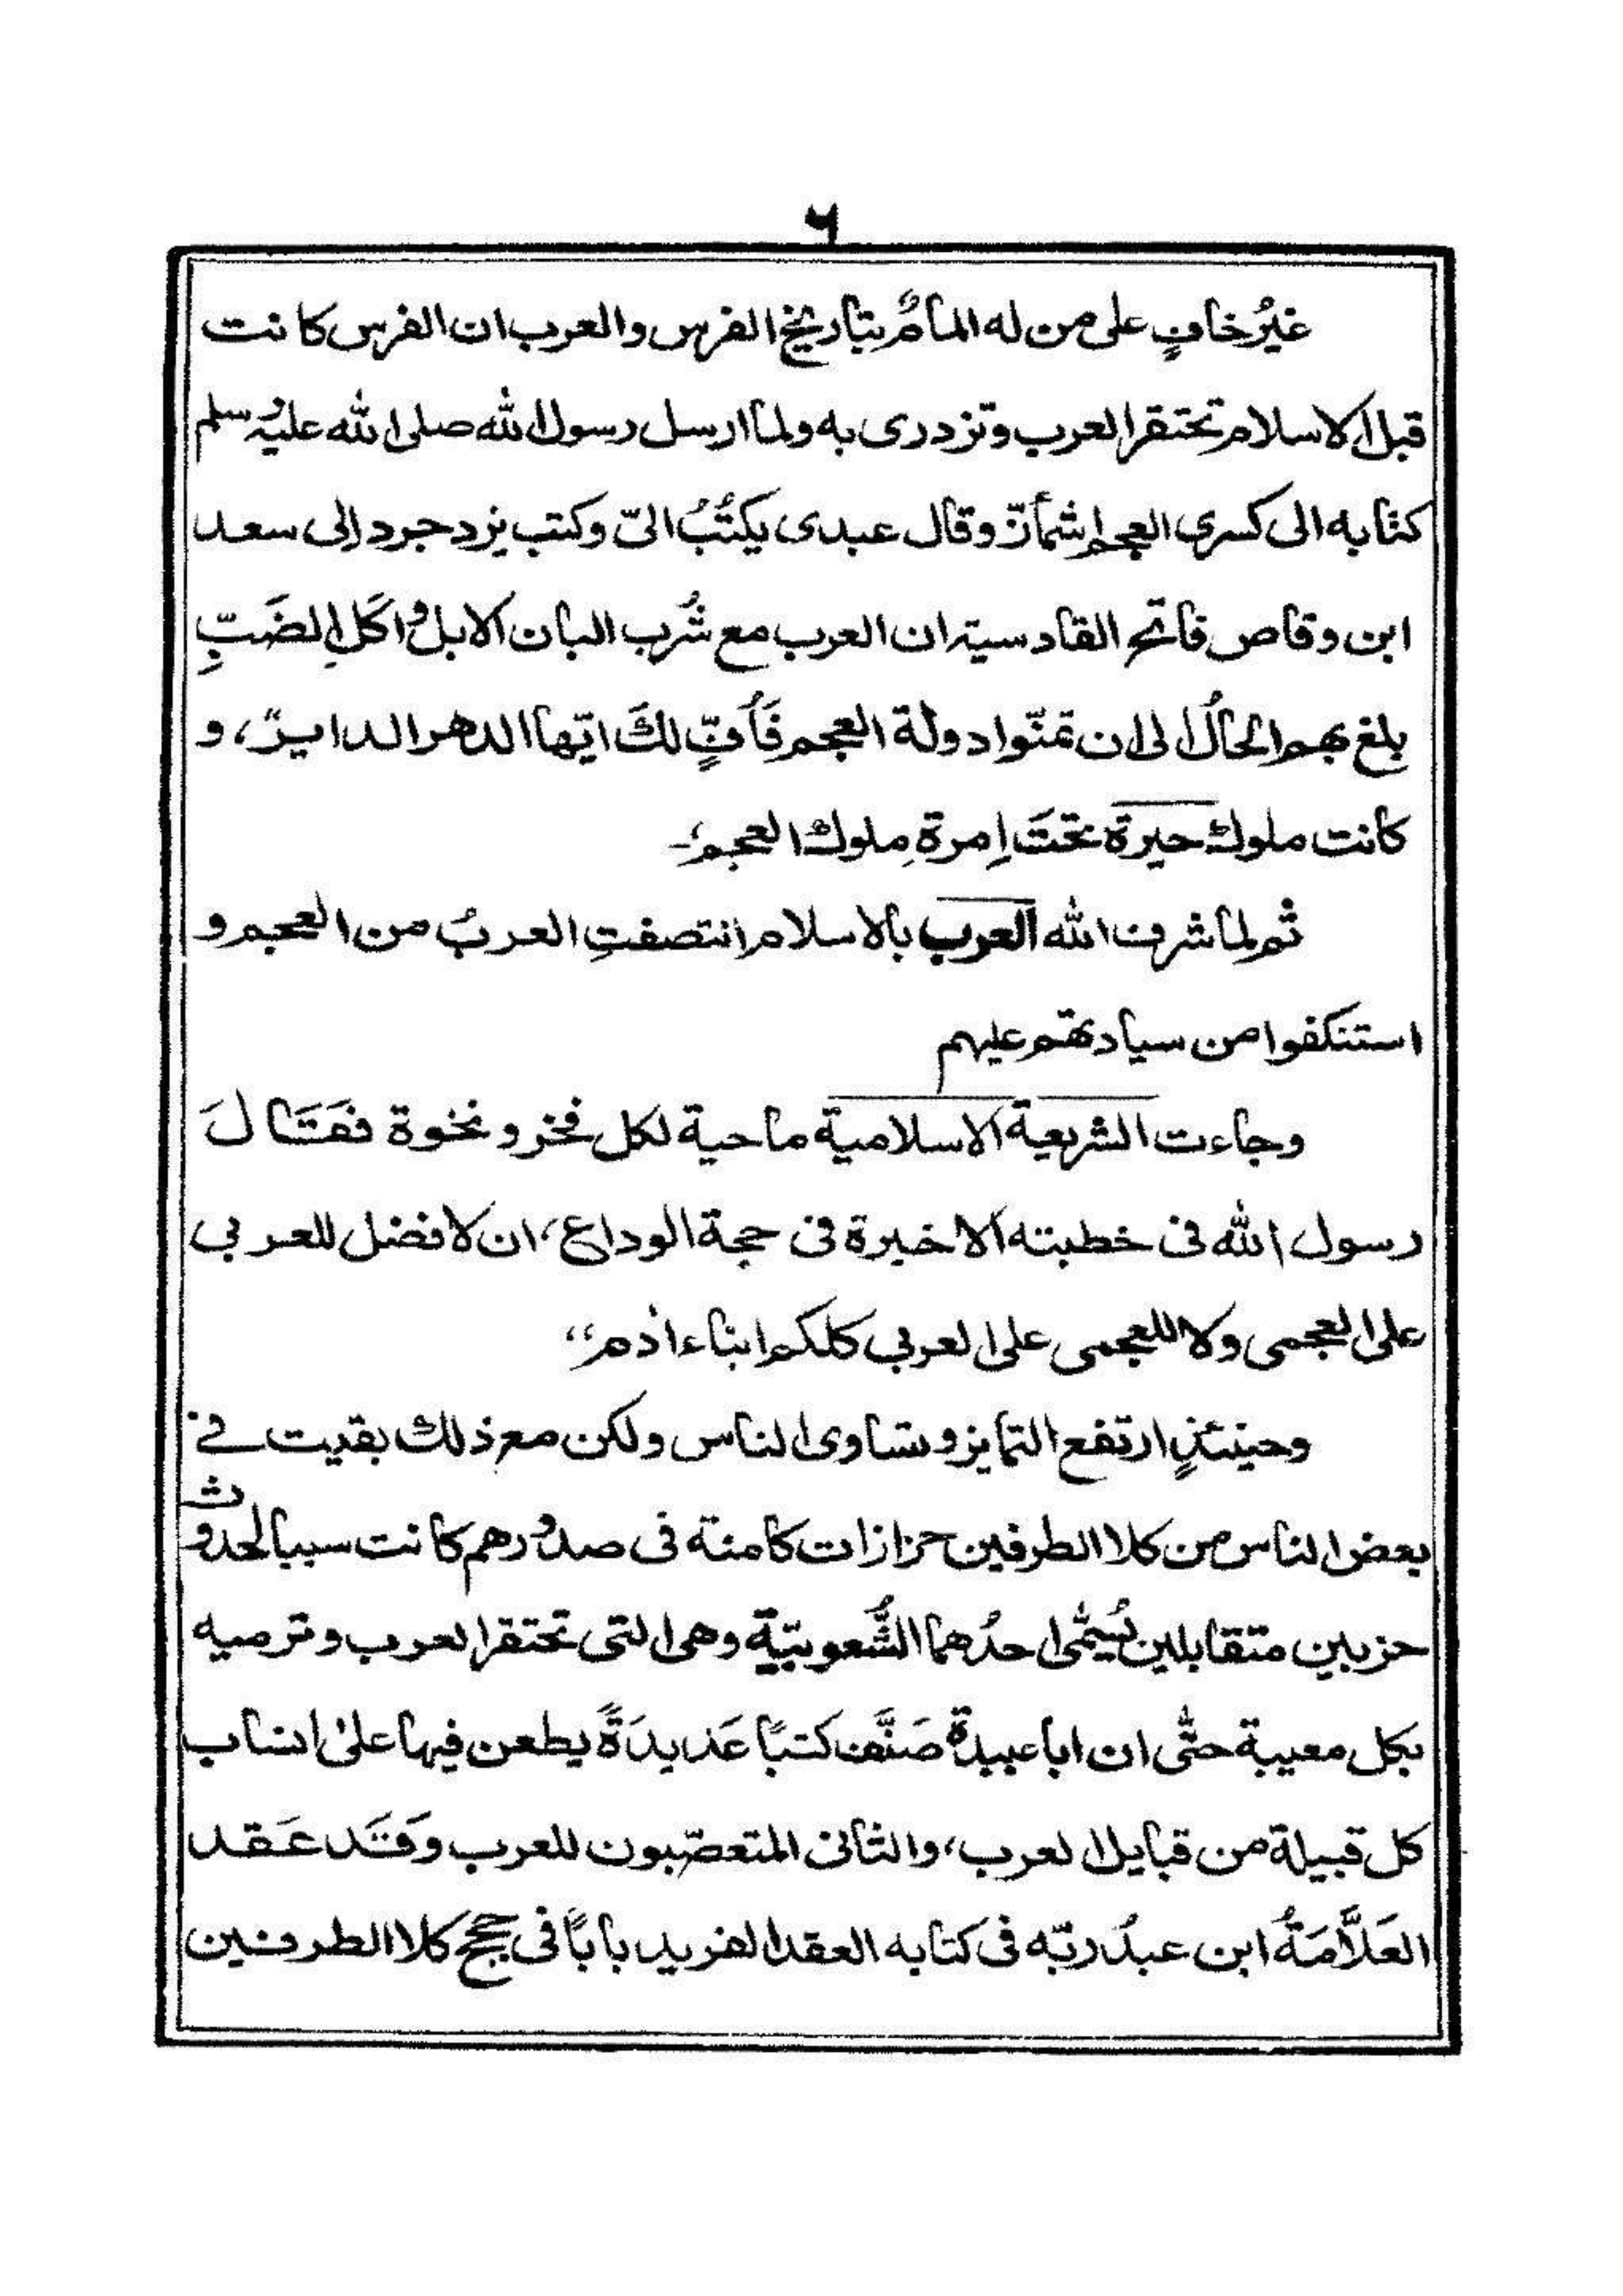 ٦
غيرُ خافٍ على من له المامٌ بتاريخ الفرس والعرب ان الفرس كانت
قبل الاسلام تحتقر العرب وتزدرى به ولما ارسل رسول الله صلى الله عليه وسلم
كتابه الى كسرى العجم اشمأزّ وقال عبدى يكتُبُ الىّ وكتب يزدجرد الى سعد
ابن وقاص فاتح القادسية ان العرب مع شُرب البان الابل واَكلِ الضَبِّ
بلغ بهم الحالُ الى ان تمنّوا دولة العجم فَاُفٍّ لكَ ايّها الدهر الدايرُ، و
كانت ملوك حيرة تحتَ اِمرة ملوك العجم؛-
ثم لما شرف الله العرب بالاسلام انتصفتِ العربُ من العجم و
استنكفوا من سيادتهم عليهم
وجاءت الشريعة الاسلامية ماحية لكل فخر ونخوة فقَالَ
رسول الله فى خطبته الاخيرة فى حجة الوداع، ان لا فضل للعربي
على العجمى ولا للعجمى على العربي كلكم ابناء اٰدم"
وحينئذٍ ارتفع التمايز وتساوى الناس ولكن مع ذلك بقيت في
بعض الناس من كلا الطرفين حزازات كامنة فى صدورهم كانت سببا لحدوث
حزبين متقابلين يُسمّٰى احدُهما الشُّعوبيّة وهى التى تحتقر العرب وترميه
بكل معيبة حتّٰى ان اباعبيدة صَنَّف كتبًا عَديدَةً يطعن فيها علىٰ انساب
كل قبيلة من قبايل العرب، والثانى المتعصّبون للعرب وقَد عَقد
العَلَّامَةُ ابن عبدُ ربّه فى كتابه العقد الفريد باباً فى حجج كلا الطرفين